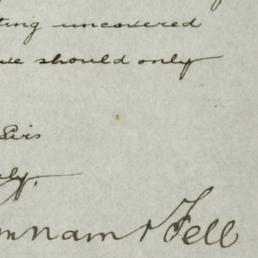 ting uncovered
we should only
Sirs
ly,
mnam & Fell